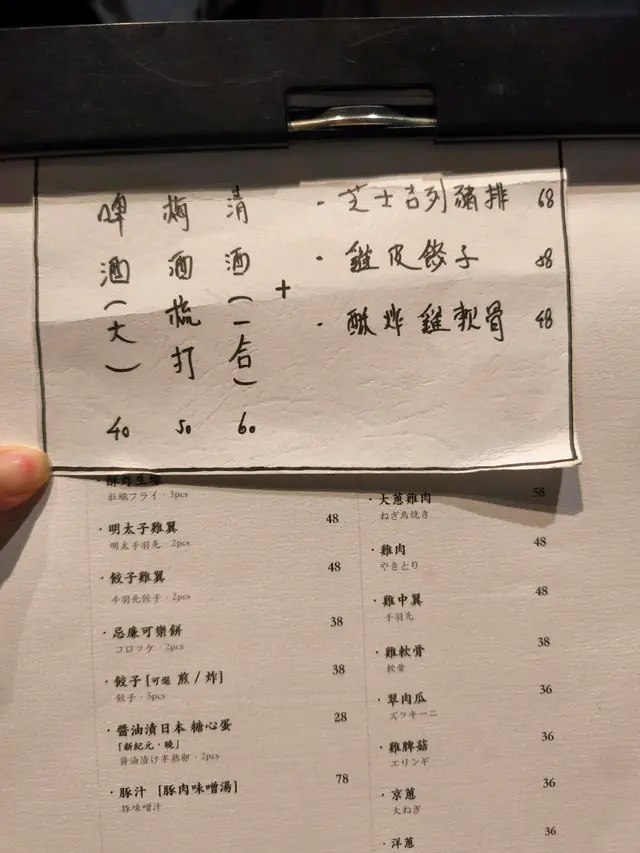 啤酒(大) 40
梅酒梳打 50
清酒(一合) 60
+
・芝士吉列豬排 68
・雞皮餃子 58
・酥炸雞軟骨 48
酥炸生蠔
牡蠣フライ・3pcs
・明太子雞翼 48
明太手羽先・2pcs
・餃子雞翼 48
手羽先餃子・2pcs
・忌廉可樂餅 38
コロッケ・2pcs
・餃子 [可選 煎 / 炸] 38
餃子・5pcs
・醬油漬日本 糖心蛋 28
「新紀元・暁」
醤油漬け半熟卵・2pcs
・豚汁 [豚肉味噌湯] 78
豚味噌汁
・大蔥雞肉 58
ねぎ鳥焼き
・雞肉 48
やきとり
・雞中翼 48
手羽先
・雞軟骨 38
軟骨
・翠肉瓜 36
ズッキーニ
・雞脾菇 36
エリンギ
・京蔥 36
大ねぎ
・洋蔥 36